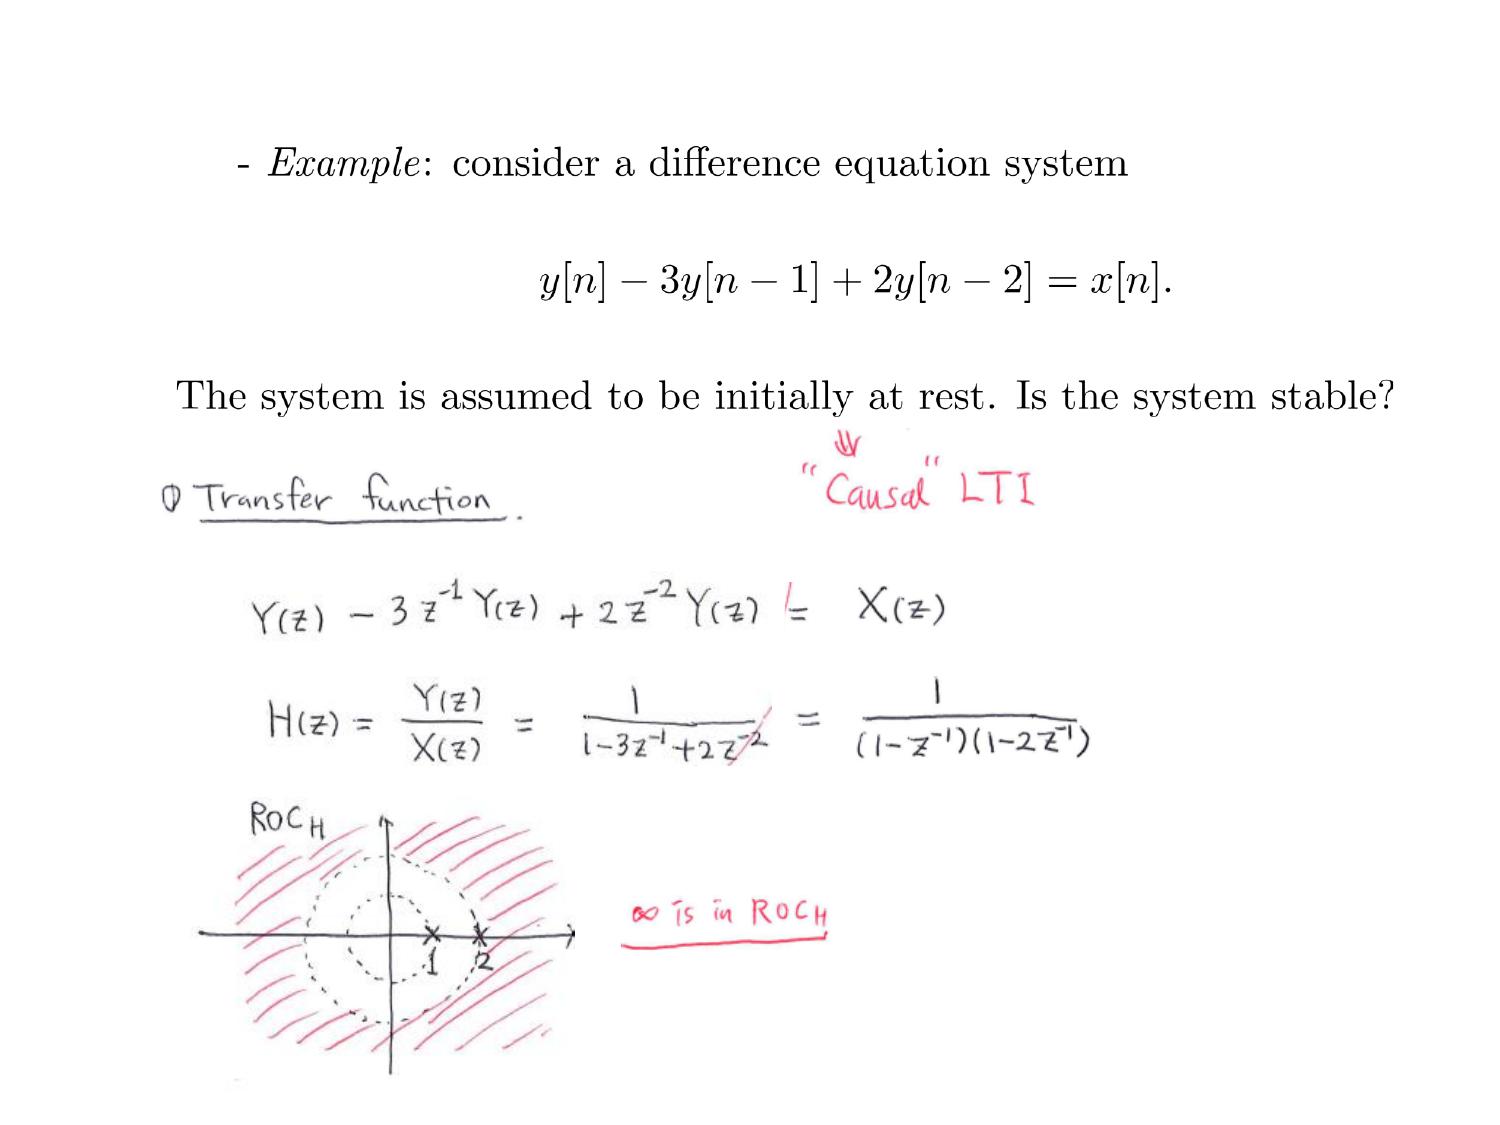 - Example: consider a difference equation system
y[n] − 3y[n − 1] + 2y[n − 2] = x[n].
The system is assumed to be initially at rest. Is the system stable?
⇓
① Transfer function.
"Causal" LTI
Y(z) − 3 z⁻¹ Y(z) + 2 z⁻² Y(z) = X(z)
H(z) = Y(z)/X(z) = 1/(1−3z⁻¹+2z⁻²) = 1/((1−z⁻¹)(1−2z⁻¹))
ROC_H
∞ is in ROC_H
1 2